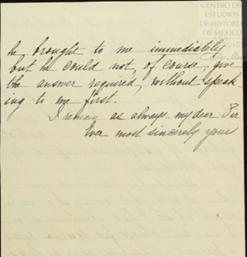 CENTRO DE
ESTUDIOS
DE HISTORIA
DE MEXICO
he brought to me immediately
but he could not, of course, give
the answer required, without speak-
ing to me first.
I remain as always my dear Sir
Ever most sincerely yours